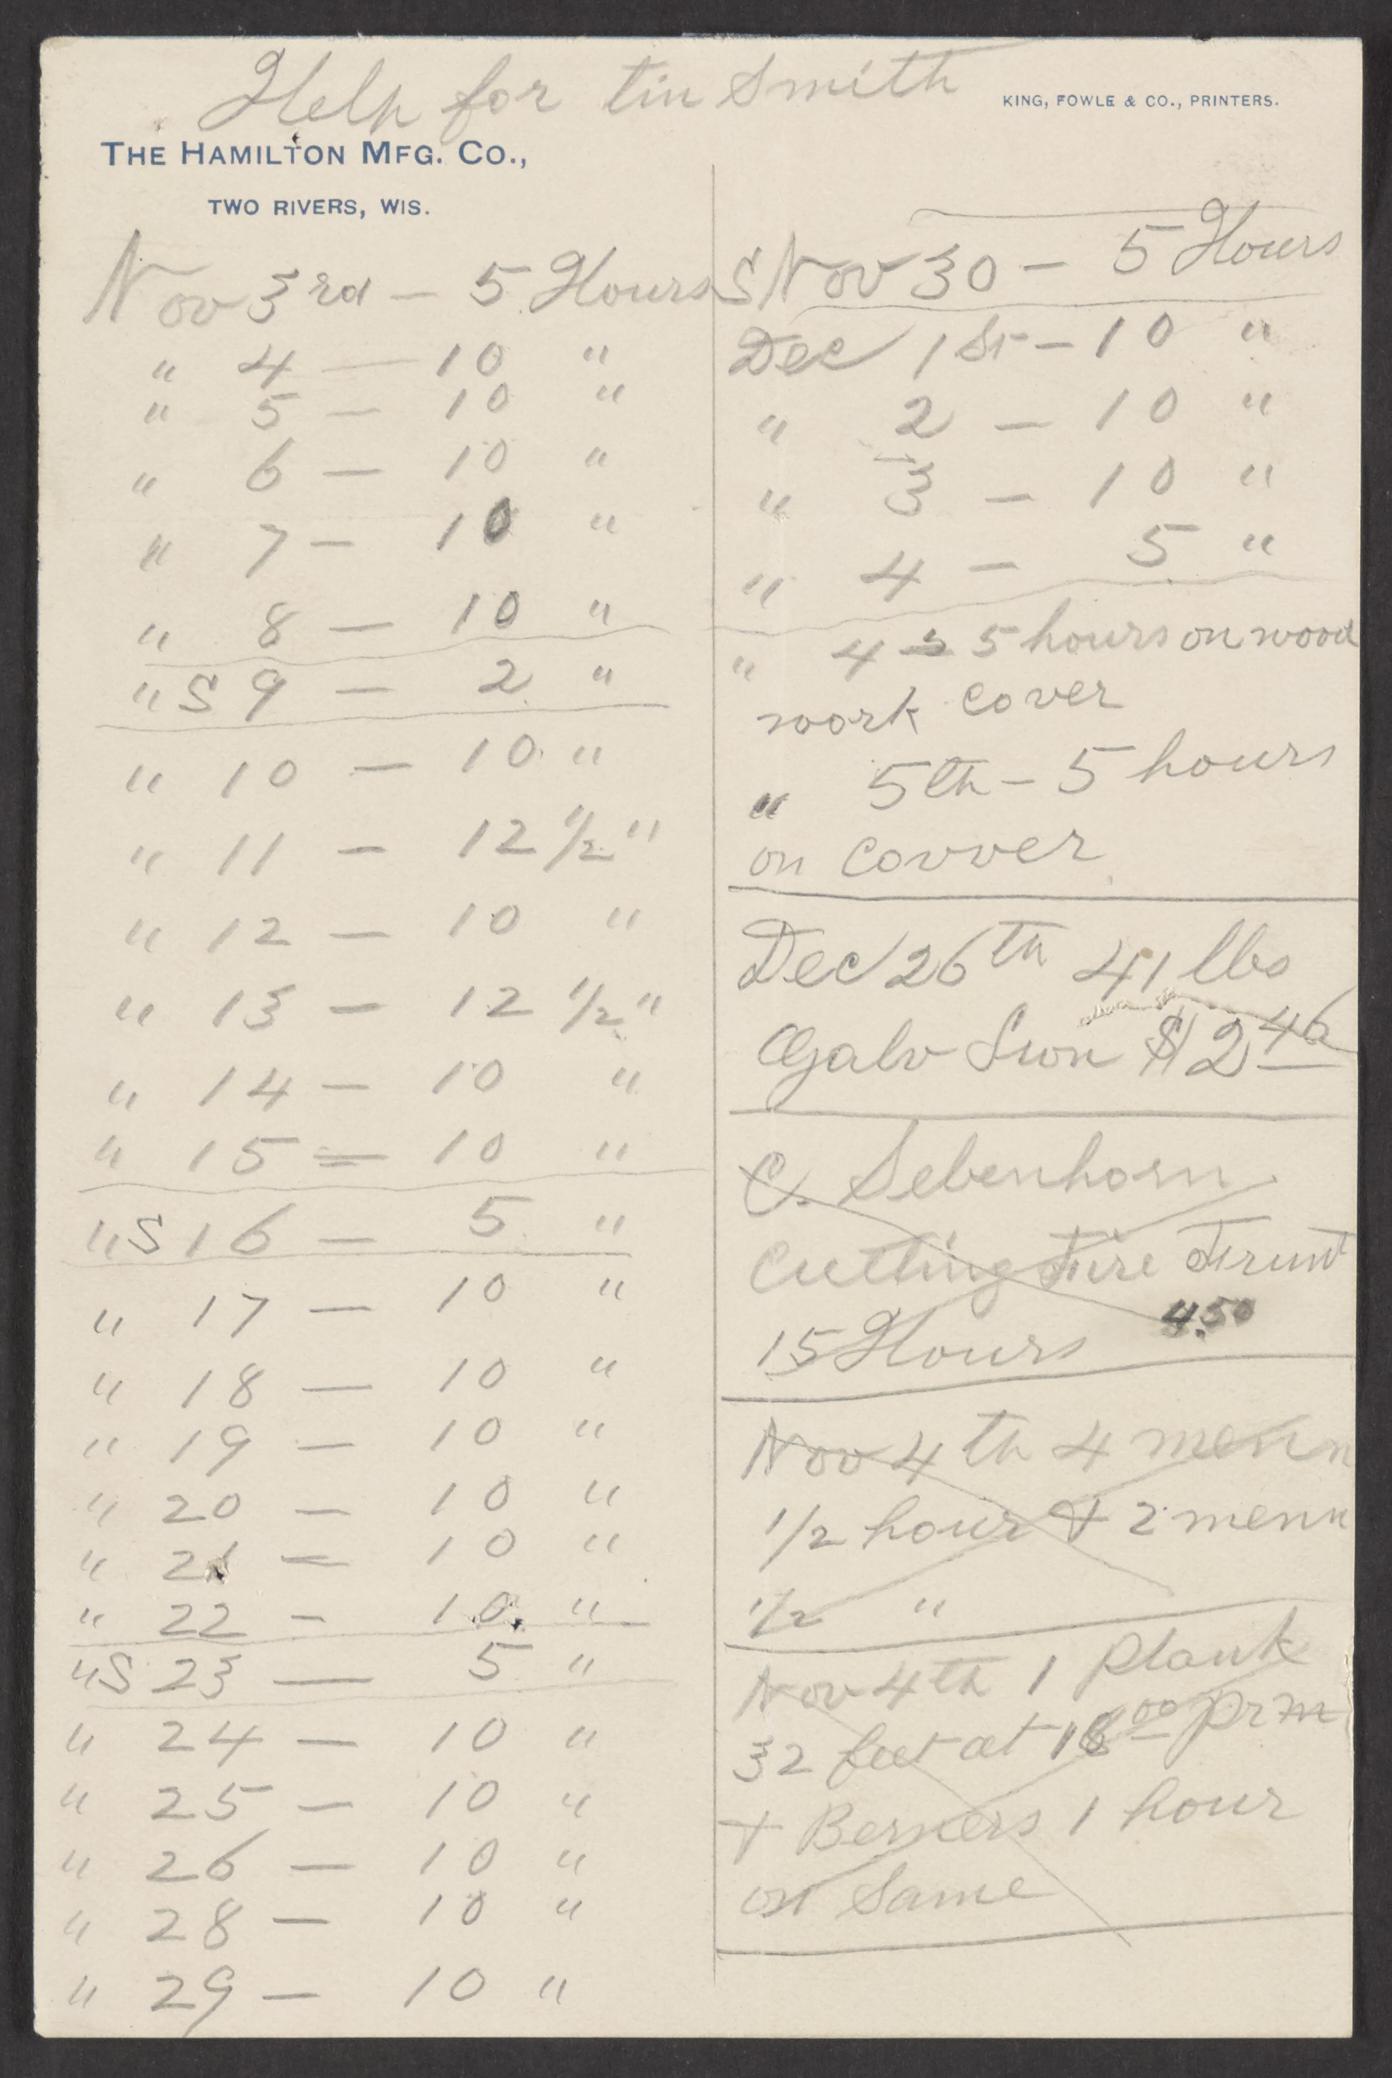 Help for tin Smith
KING, FOWLE & CO., PRINTERS.
THE HAMILTON MFG. CO.,
TWO RIVERS, WIS.
Nov 3rd - 5 Hours
" 4 - 10 "
" 5 - 10 "
" 6 - 10 "
" 7 - 10 "
" 8 - 10 "
" S 9 - 2 "
" 10 - 10 "
" 11 - 12 1/2 "
" 12 - 10 "
" 13 - 12 1/2 "
" 14 - 10 "
" 15 = 10 "
" S 16 - 5 "
" 17 - 10 "
" 18 - 10 "
" 19 - 10 "
" 20 - 10 "
" 21 = 10 "
" 22 - 10 "
" S 23 - 5 "
" 24 - 10 "
" 25 - 10 "
" 26 - 10 "
" 28 - 10 "
" 29 - 10 "
S Nov 30 - 5 Hours
Dec 1st - 10 "
" 2 - 10 "
" 3 - 10 "
" 4 - 5 "
" 4 5 hours on wood
work cover
" 5th - 5 hours
on covver
Dec 26th 41 lbs
Galv Iron $2 46
C. Sebenhorn
Cutting Fire
15 Hours 4.50
Nov 4th 4 menn
1/2 hour + 2 menn
1/2 "
Nov 4th 1 Plank
32 feet at 18 00 pr m
+ Berners 1 hour
on Same